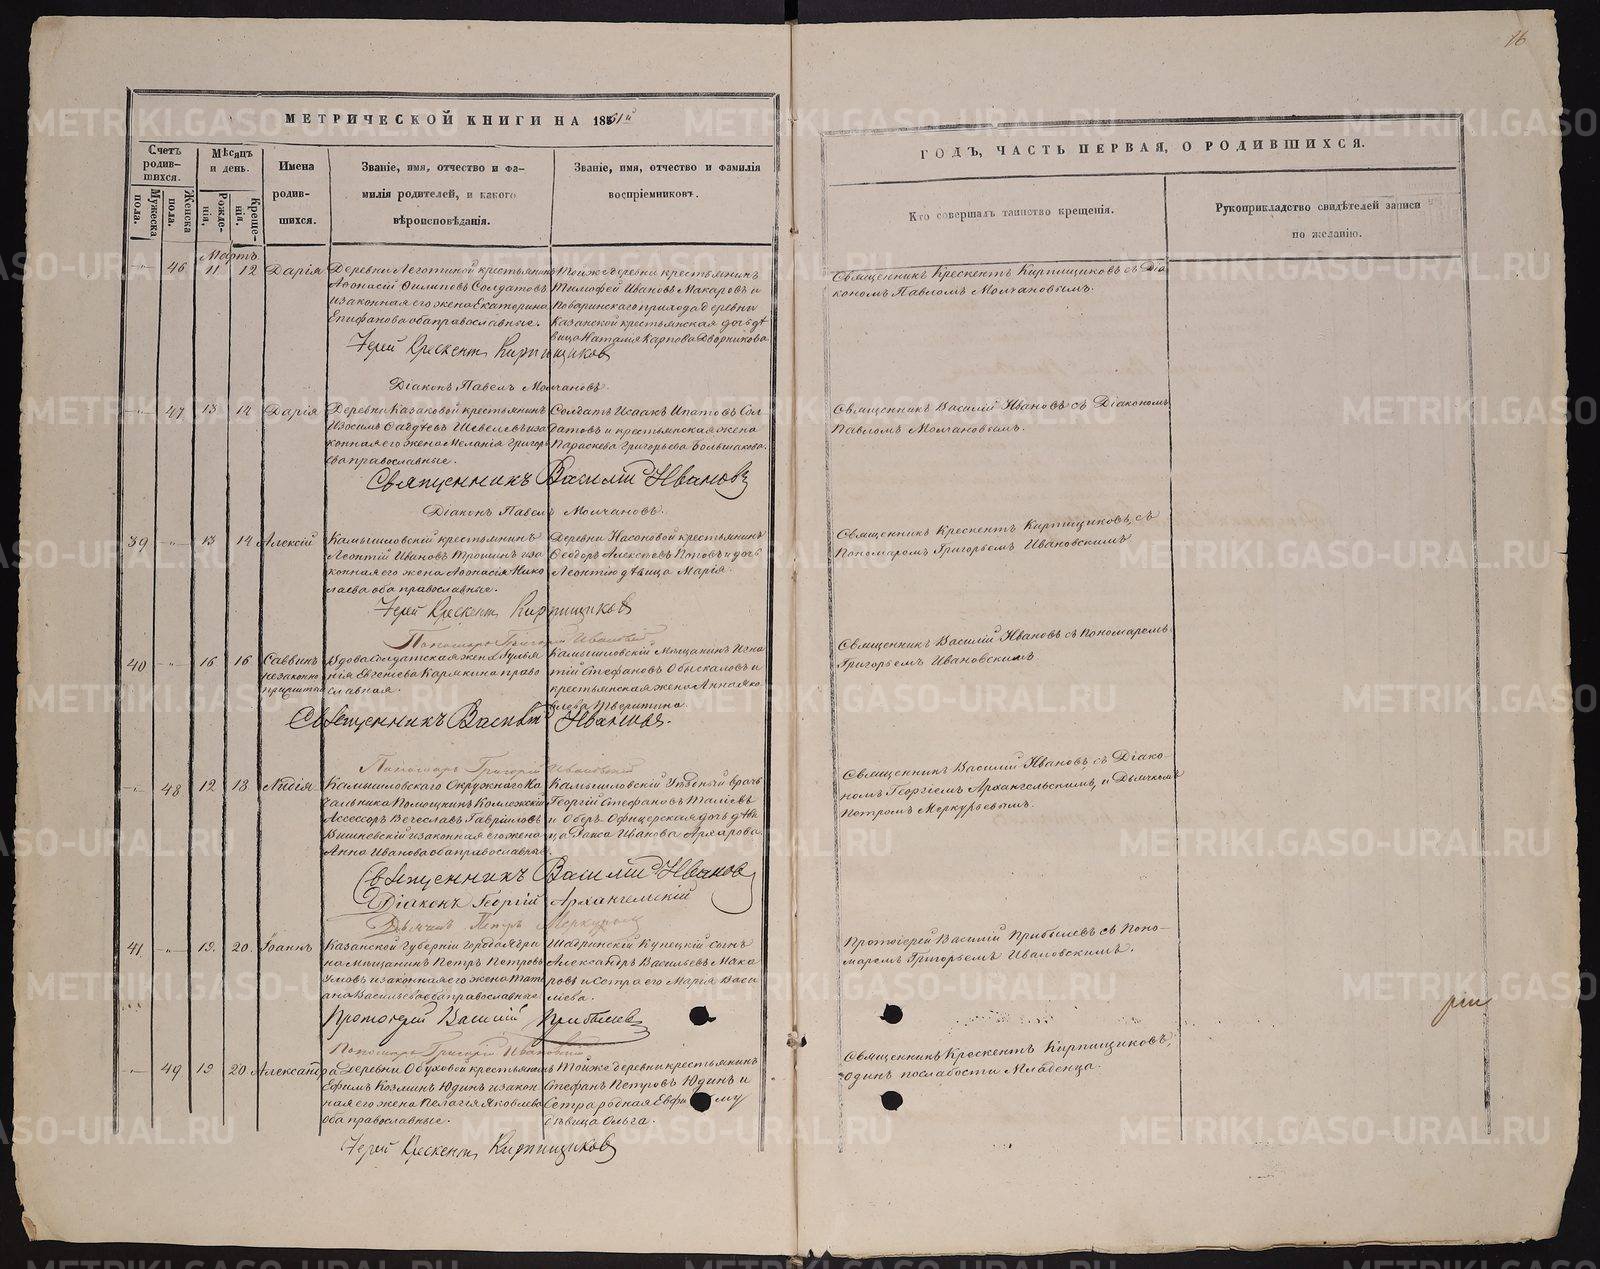 16
МЕТРИЧЕСКОЙ КНИГИ НА 1861й
ГОДЪ, ЧАСТЬ ПЕРВАЯ, О РОДИВШИХСЯ.
Счетъ родив-
шихся.
Мужеска пола.
Женска пола.
Мѣсяцъ и день.
Рожде-
нія.
Креще-
нія.
Имена
родив-
шихся.
Званіе, имя, отчество и фа-
милія родителей, и какого
вѣроисповѣданія.
Званіе, имя, отчество и фамилія
воспріемниковъ.
Кто совершалъ таинство крещенія.
Рукоприкладство свидѣтелей записи
по желанію.
Мартъ
46 11 12 Дарія
Деревни Леготиной крестьянинъ
Афонасій Филиповъ Солдатовъ
и законная его жена Екатерина
Епифанова оба православные.
Тойже деревни крестьянинъ
Тимофей Ивановъ Макаровъ и
Поваринскаго прихода деревни
Казанской крестьянская дочь дѣ
вица Наталія Карпова Дворникова
Священникъ Крескентъ Кирпищиковъ съ Діа
кономъ Павломъ Молчановымъ.
Іерей Крескентъ Кирпищиковъ
Діаконъ Павелъ Молчановъ.
47 13 14 Дарія
Деревни Казаковой крестьянинъ
Изосимъ Фадѣевъ Шевелевъ и за
конная его жена Меланія Григорь
ева православные.
Солдатъ Исаакъ Ипатовъ Сол
датовъ и крестьянская жена
Параскева Григорьева Большакова.
Священникъ Василій Ивановъ съ Діакономъ
Павломъ Молчановымъ.
Священникъ Василій Ивановъ
Діаконъ Павелъ Молчановъ.
39 13 14 Алексій
Камышловскій крестьянинъ
Леонтій Ивановъ Трошинъ и за
конная его жена Афонасія Нико
лаева оба православные.
Деревни Насоновой крестьянинъ
Феодоръ Алексѣевъ Поповъ и дочь
Леонтію дѣвица Марія.
Священникъ Крескентъ Кирпищиковъ, съ
Пономаремъ Григорьемъ Ивановскимъ
Іерей Крескентъ Кирпищиковъ
Пономарь Григорій Ивановскій
40 16 16 Саввинъ
незаконно
прижитый
Вдова солдатская жена Іулья
нія Евгеніева Карякина право
славная.
Камышловскій Мѣщанинъ Игна
тій Стефановъ Обыскаловъ и
крестьянская жена Анна Яко
влева Тверитина.
Священникъ Василій Ивановъ съ Пономаремъ
Григорьемъ Ивановскимъ.
Священникъ Василій Ивановъ.
Пономарь Григорій Ивановскій
48 12 18 Лидія
Камышловскаго Окружнаго На
чальника Помощникъ Коллежскій
Ассессоръ Вечеславъ Гавриловъ
Вишневскій и законная его жена
Анна Иванова оба православные.
Камышловскій Уѣздный врачь
Георгій Стефановъ Таліевъ
и Оберъ Офицерская дочь дѣви
ца Раиса Иванова Архарова.
Священникъ Василій Ивановъ, съ Діако-
номъ Георгіемъ Архангельскимъ, и Дьячкомъ
Петромъ Меркурьевымъ.
Священникъ Василій Ивановъ
Діаконъ Георгій Архангельскій
Дьячекъ Петръ Меркурьевъ
41 19. 20. Іоаннъ
Казанской губерніи города Ягри
на мѣщанинъ Петръ Петровъ
Умовъ и законная его жена Тать
ана Васильева оба православные
Шадринскій Купецкій сынъ
Александръ Васильевъ Мака
ровъ и Сестра его Марія Васи
льева.
Протоіерей Василій Прибылевъ съ Поно-
маремъ Григорьемъ Ивановскимъ.
Протоіерей Василій Прибылевъ
Пономарь Григорій Ивановскій
49 19 20 Александра
Деревни Обуховой крестьянинъ
Ефимъ Козминъ Юдинъ и закон
ная его жена Пелагія Яковлева
оба православные.
Тойже деревни крестьянинъ
Стефанъ Петровъ Юдинъ и
Сестра родная Евфимому
дѣвица Ольга.
Священникъ Крескентъ Кирпищиковъ,
одинъ по слабости Младенца.
Іерей Крескентъ Кирпищиковъ
METRIKI.GASO-URAL.RU